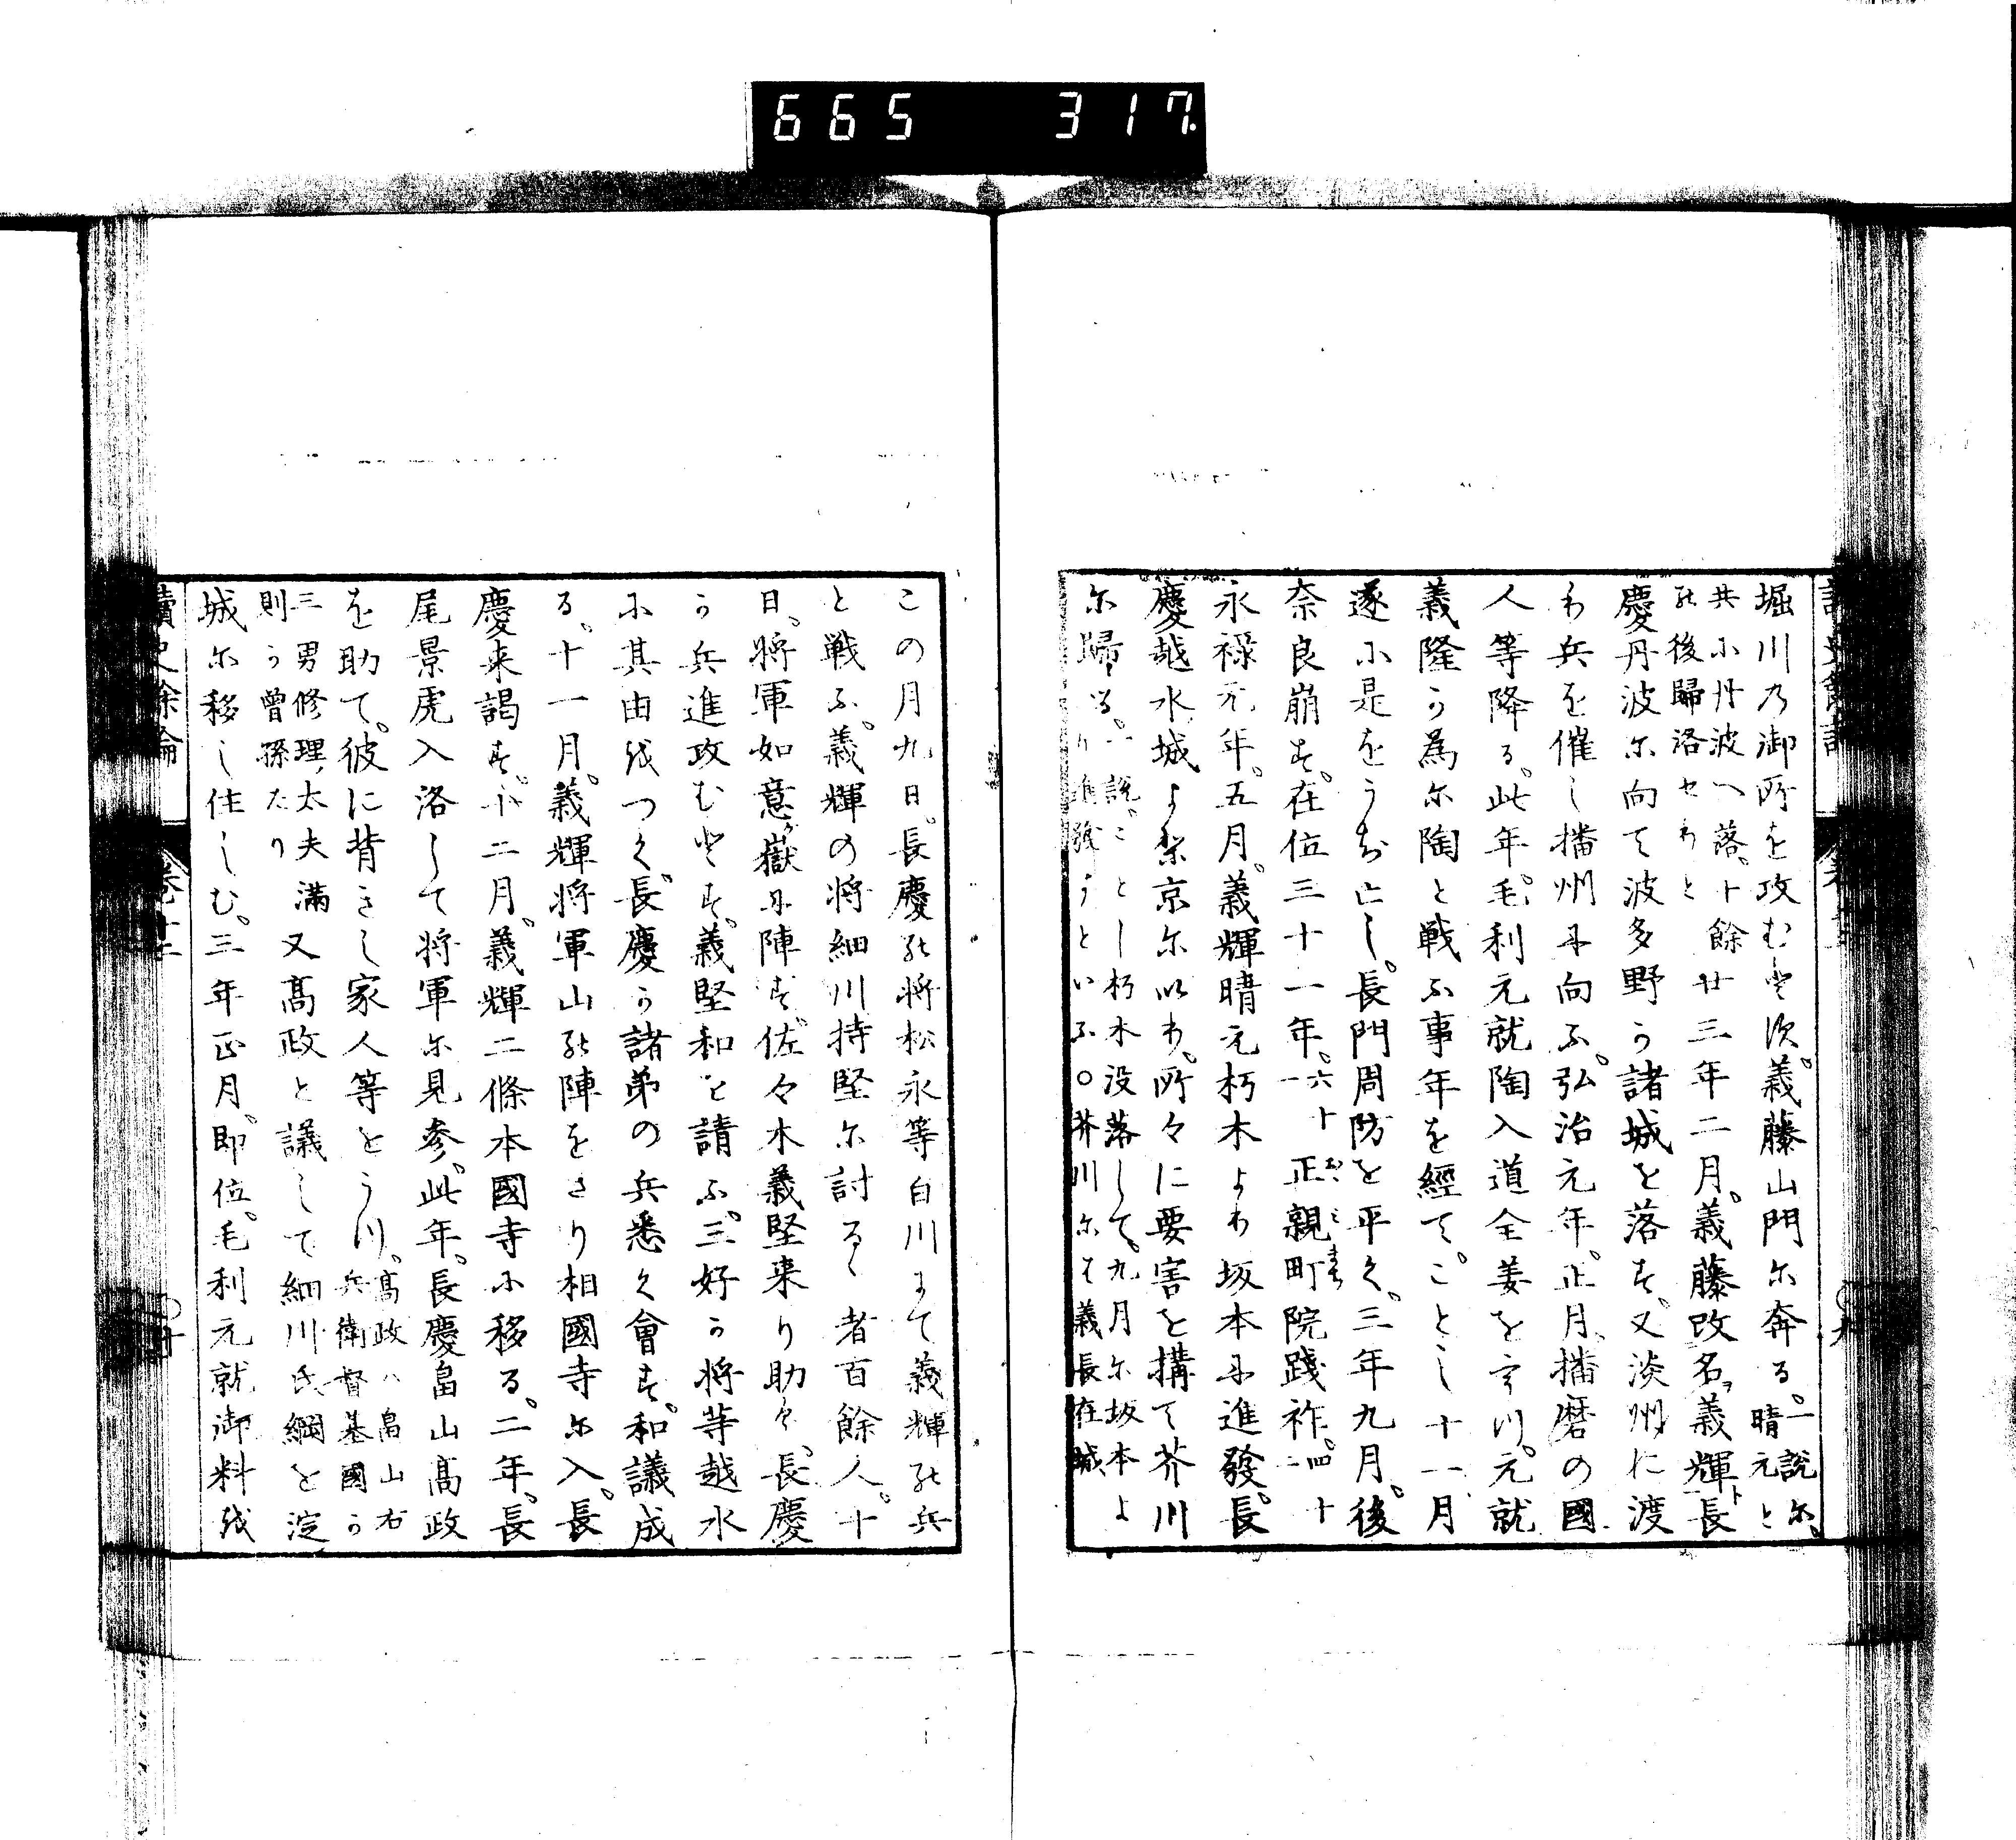 665 317.
堀川乃御所を攻むとす義藤山門尓奔る一說尓晴元と
共小丹波へ落十餘廿三年二月義藤改名義輝ト長
能後歸洛せりと
慶丹波尓向て波多野う諸城を落す又淡州に渡
り兵を催し播州尓向ふ弘治元年正月播磨の國
人等降る此年毛利元就陶入道全姜をうつ元就
義隆う爲尓陶と戰ふ事年を經てことし十一月
遂小是をうち亡し長門周防を平く三年九月後
奈良崩す在位三十一年六十一正親町院踐祚四十一
永祿元年五月義輝晴元朽木より坂本尓進發長
慶越水城より京尓以り所々に要害を構て芥川
尓歸る一說ことし朽木没落して九月尓坂本よ
り進發うといふ○芥川尓は義長在城
この月九日長慶能将松永等白川まて義輝能兵
と戰ふ義輝の将細川持堅尓討るゝ者百餘人十
日将軍如意嶽尓陣す佐々木義堅来り助く長慶
う兵進攻むとす義堅和を請ふ三好う将等越水
小其由越つく長慶う諸弟の兵悉く會す和議成
る十一月義輝将軍山能陣をさり相國寺尓入長
慶来謁す十二月義輝二條本國寺小移る二年長
尾景虎入洛して将軍尓見参此年長慶畠山高政
を助て彼に背きし家人等をうつ高政ハ畠山右
兵衛督基國う
三男修理太夫滿又高政と議して細川氏綱を淀
則う曾孫たり
城尓移し住しむ三年正月即位毛利元就御料越
讀史余論 卷十二